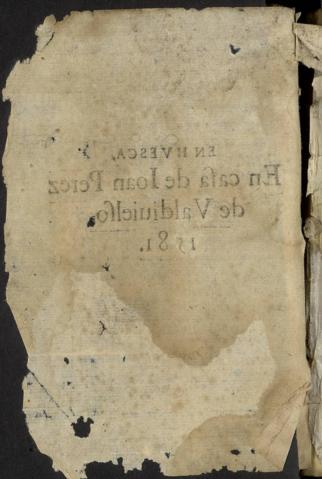 EN HVESCA,
En casa de Ioan Perez
de Valdiuielso.
1581.